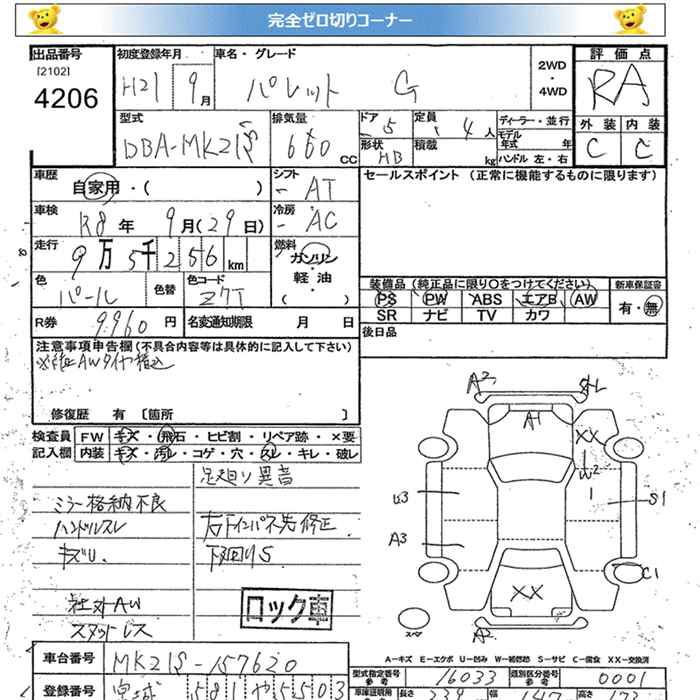 完全ゼロ切りコーナー
出品番号
[2102]
4206
初度登録年月
H21 9月
車名・グレード
パレット G
2WD
・
4WD
評価点
RA
型式
DBA-MK21S
排気量
660 cc
ドア 5
定員 4人
形状 HB
積載 kg
ディーラー・並行
モデル
年式 年
ハンドル 左・右
外装 内装
C C
車歴
自家用・( )
シフト
- AT
セールスポイント (正常に機能するものに限ります)
車検
R8年 9月(29日)
冷房
- AC
走行
9万5千256km
燃料
ガソリン
軽油
( )
色
パール
色替
色コード
Z7T
装備品 (純正品に限り○をつけてください)
PS PW ABS エアB AW
SR ナビ TV カワ
新車保証書
有・無
R券 9960円
名変通知期限 月 日
後日品
注意事項申告欄 (不具合内容等は具体的に記入して下さい)
AWタイヤ積込
修復歴 有 [箇所 ]
検査員
記入欄
FW キズ・飛石・ヒビ割・リペア跡・×要
内装 キズ・汚レ・コゲ・穴・スレ・キレ・破レ
足廻り異音
ミラー格納不良
ハンドルスレ
キズU.
右下インパネ先修正
下廻りS
社外AW
スタットレス
ロック車
A2
A1
XX
W2
1
U3
S1
A3
C1
XX
スペア
A2
A-キズ E-エクボ U-凹み W-補修跡 S-サビ C-腐食 XX-交換済
車台番号 MK21S-157620
型式指定番号
参考
16033
類別区分番号
参考
0001
登録番号 宮城 581 や 5503
車庫証明用
長さ 339
幅 147
高さ